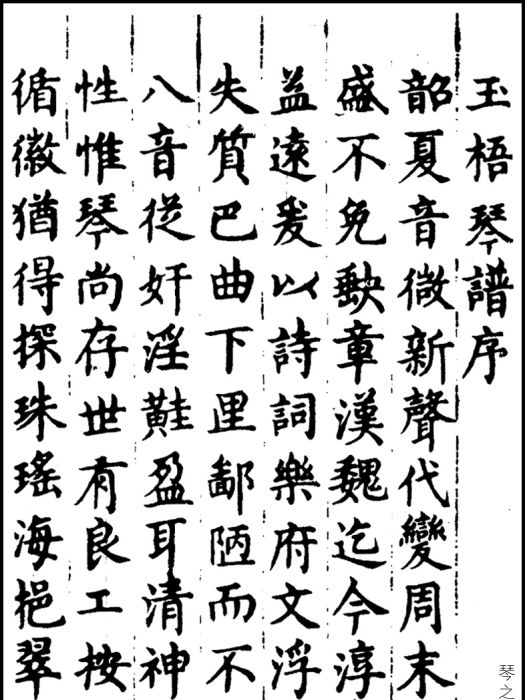 玉梧琴譜序
韶夏音微新聲代變周末
盛不免章漢魏迄今淳
益遠爰以詩詞樂府文浮
失質巴曲下里鄙陋而不
八音從奸淫黊盈耳清神
性惟琴尚存世有良工按
循徽猶得探珠瑤海挹翠
琴